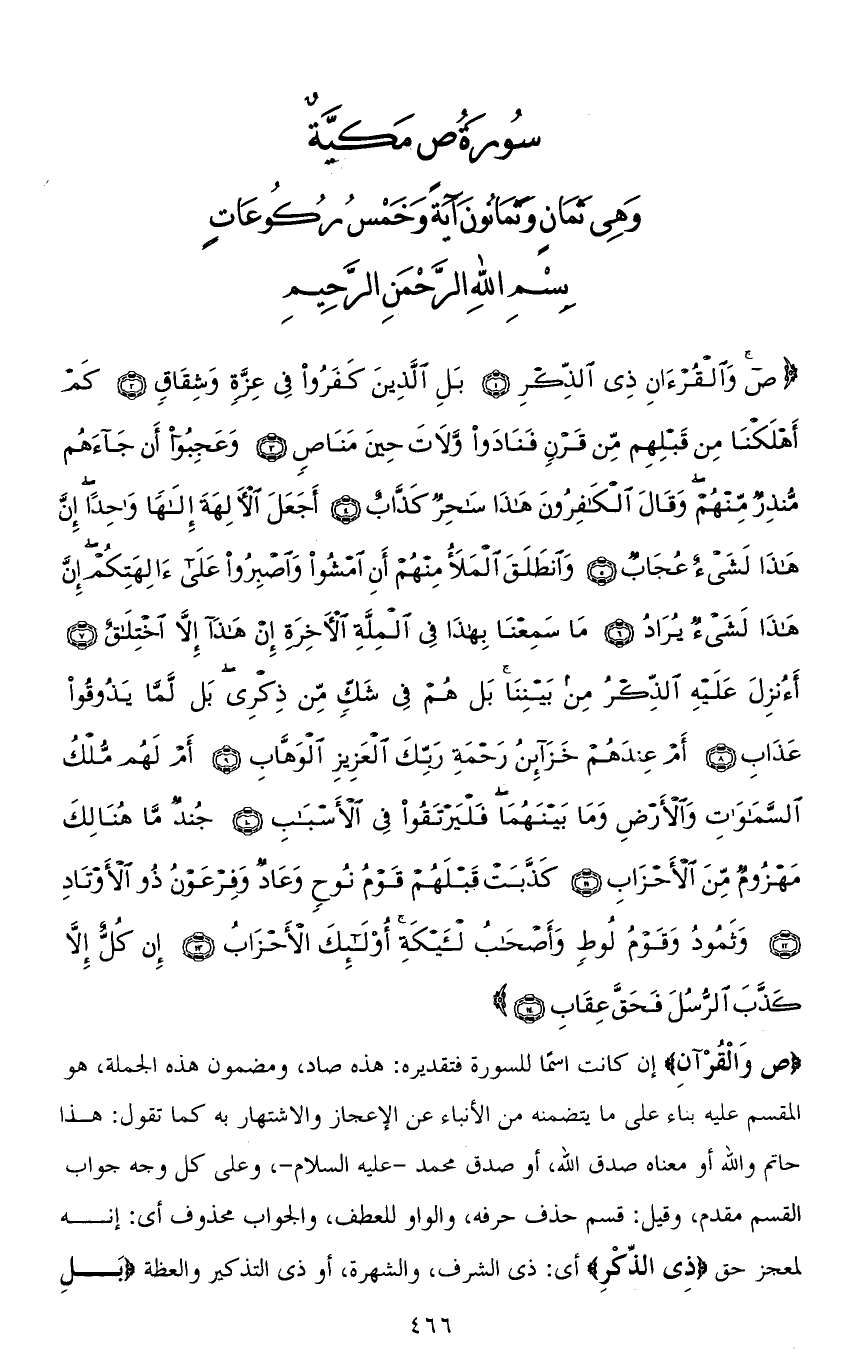 سُورَةُ ص مَكِيَّةٌ
وَهِىَ ثَمَانٍ وَثَمَانُونَ آيَةً وَخَمْسُ رُكُوعَاتٍ
بِسْمِ اللهِ الرَّحْمَنِ الرَّحِيمِ
﴿صٓ ۚ وَٱلْقُرْءَانِ ذِى ٱلذِّكْرِ ١ بَلِ ٱلَّذِينَ كَفَرُوا۟ فِى عِزَّةٍ وَشِقَاقٍ ٢ كَمْ
أَهْلَكْنَا مِن قَبْلِهِم مِّن قَرْنٍ فَنَادَوا۟ وَّلَاتَ حِينَ مَنَاصٍ ٣ وَعَجِبُوٓا۟ أَن جَآءَهُم
مُّنذِرٌ مِّنْهُمْ ۖ وَقَالَ ٱلْكَـٰفِرُونَ هَـٰذَا سَـٰحِرٌ كَذَّابٌ ٤ أَجَعَلَ ٱلْأَلِهَةَ إِلَـٰهًا وَٰحِدًا ۖ إِنَّ
هَـٰذَا لَشَىْءٌ عُجَابٌ ٥ وَٱنطَلَقَ ٱلْمَلَأُ مِنْهُمْ أَنِ ٱمْشُوا۟ وَٱصْبِرُوا۟ عَلَىٰٓ ءَالِهَتِكُمْ ۖ إِنَّ
هَـٰذَا لَشَىْءٌ يُرَادُ ٦ مَا سَمِعْنَا بِهَـٰذَا فِى ٱلْمِلَّةِ ٱلْأَخِرَةِ إِنْ هَـٰذَآ إِلَّا ٱخْتِلَـٰقٌ ٧
أَءُنزِلَ عَلَيْهِ ٱلذِّكْرُ مِنۢ بَيْنِنَا ۚ بَلْ هُمْ فِى شَكٍّ مِّن ذِكْرِى ۖ بَل لَّمَّا يَذُوقُوا۟
عَذَابِ ٨ أَمْ عِندَهُمْ خَزَآئِنُ رَحْمَةِ رَبِّكَ ٱلْعَزِيزِ ٱلْوَهَّابِ ٩ أَمْ لَهُم مُّلْكُ
ٱلسَّمَـٰوَٰتِ وَٱلْأَرْضِ وَمَا بَيْنَهُمَا ۖ فَلْيَرْتَقُوا۟ فِى ٱلْأَسْبَـٰبِ ١٠ جُندٌ مَّا هُنَالِكَ
مَهْزُومٌ مِّنَ ٱلْأَحْزَابِ ١١ كَذَّبَتْ قَبْلَهُمْ قَوْمُ نُوحٍ وَعَادٌ وَفِرْعَوْنُ ذُو ٱلْأَوْتَادِ
١٢ وَثَمُودُ وَقَوْمُ لُوطٍ وَأَصْحَـٰبُ لْـَٔيْكَةِ ۚ أُو۟لَـٰٓئِكَ ٱلْأَحْزَابُ ١٣ إِن كُلٌّ إِلَّا
كَذَّبَ ٱلرُّسُلَ فَحَقَّ عِقَابِ ١٤﴾
﴿ص وَالْقُرْآنِ﴾ إن كانت اسمًا للسورة فتقديره: هذه صاد، ومضمون هذه الجملة، هو
المقسم عليه بناء على ما يتضمنه من الأنباء عن الإعجاز والاشتهار به كما تقول: هـذا
حاتم والله أو معناه صدق الله، أو صدق محمد -عليه السلام-، وعلى كل وجه جواب
القسم مقدم، وقيل: قسم حذف حرفه، والواو للعطف، والجواب محذوف أى: إنـــه
لمعجز حق ﴿ذِى الذِّكْرِ﴾ أى: ذى الشرف، والشهرة، أو ذى التذكير والعظة ﴿بَـــلِ
٤٦٦